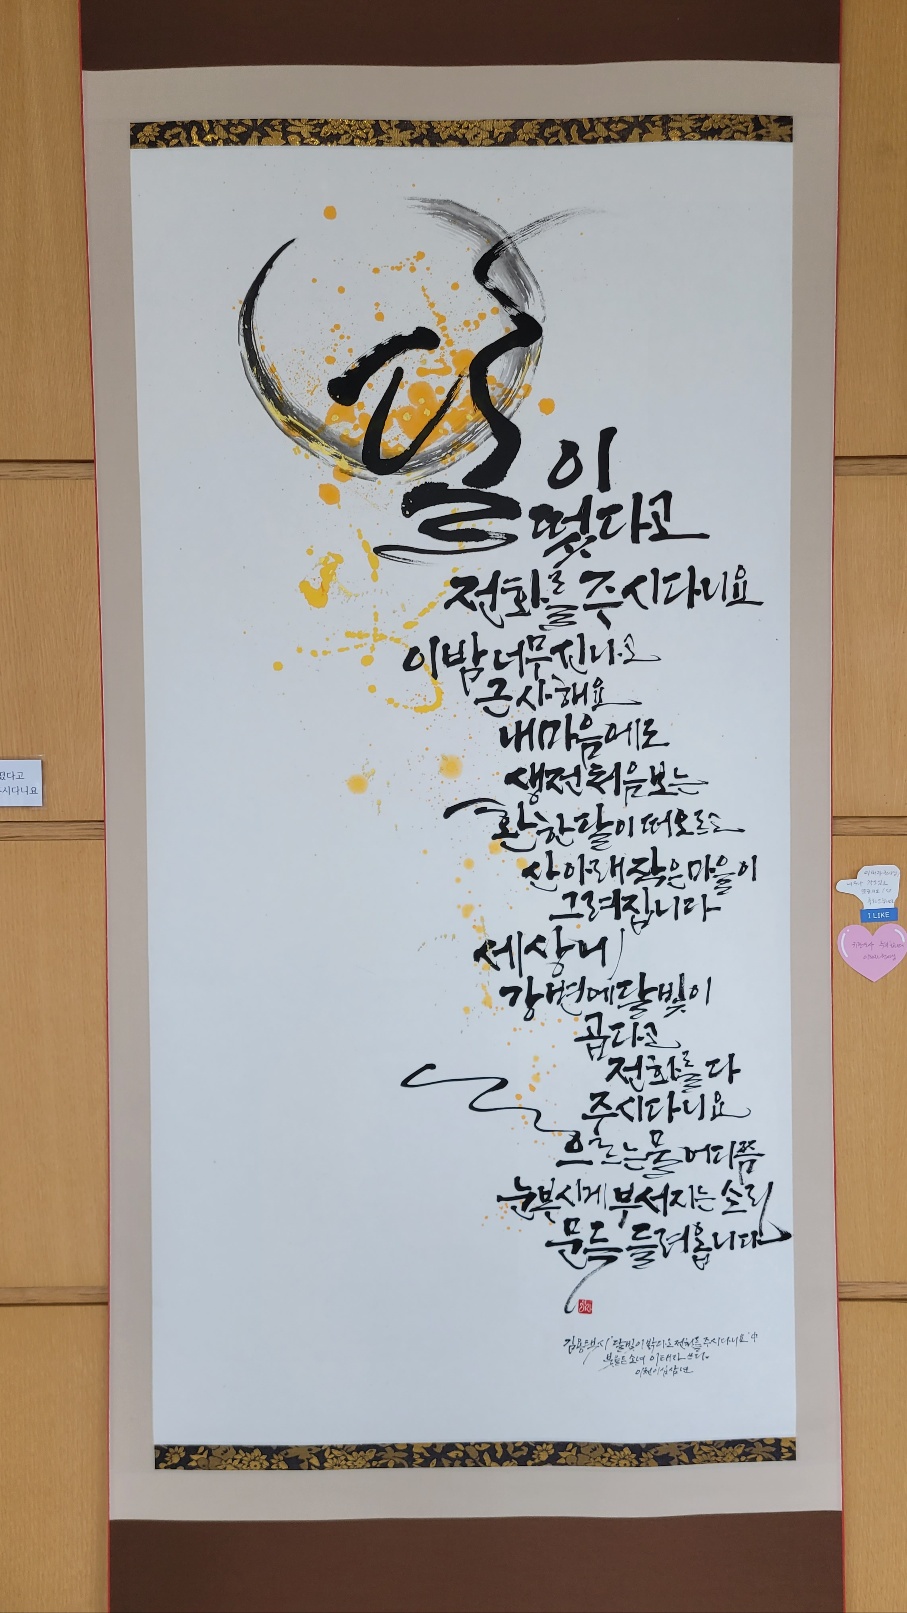 달이
떴다고
전화를 주시다니요
이밤 너무 신나고
근사해요
내마음에도
생전처음보는
환한달이 떠오르고
산아래 작은마을이
그려집니다
세상에
강변에달빛이
곱다고
전화를다
주시다니요
흐르는물 어디쯤
눈부시게 부서지는 소리
문득 들려옵니다
김용택 시 달빛이
주시다니요 中
쓰다
이천이십삼년
떴다고
주시다니요
I LIKE